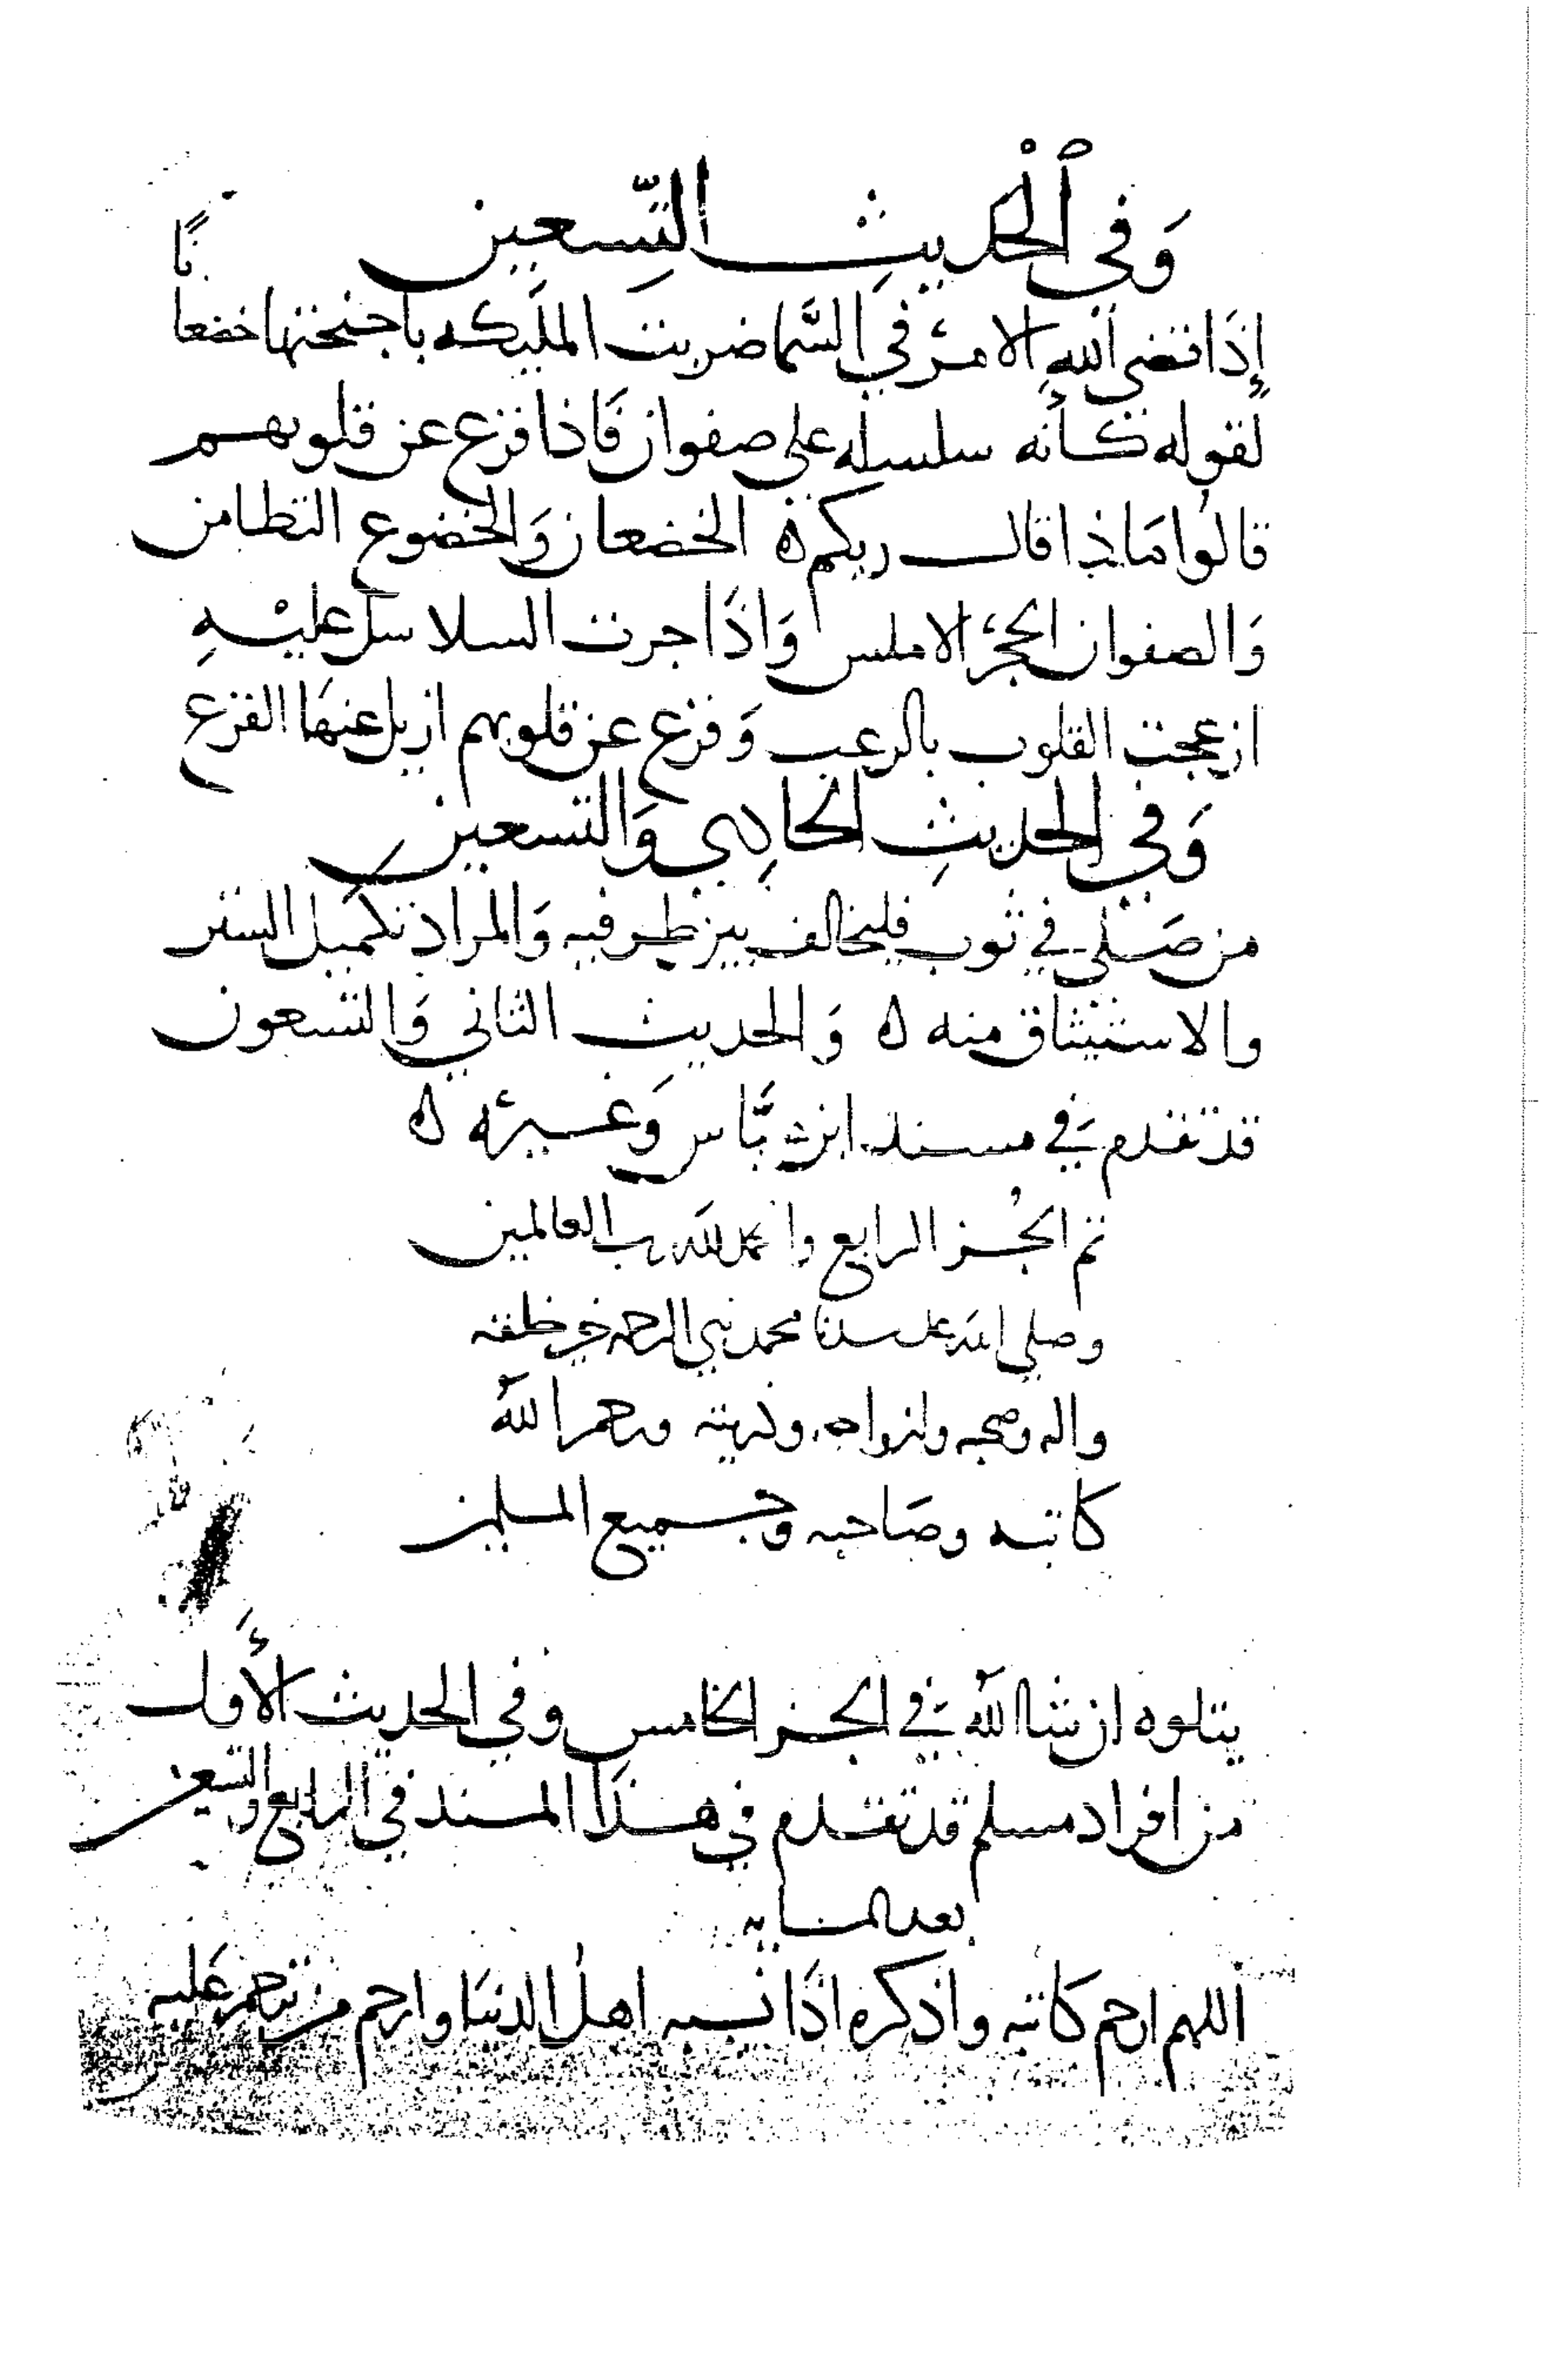 وَفي الْحَديثِ التِّسعين
إذَا قضى اللهِ الامرُ في السَّما ضربت الملَيكه باجنحتها خضعا
نًا
لقوله كأنه سلسله على صفوان فَاذا فزع عن قلوبهم
قالوا مَاذا قال ربكم ه الخضعان وَالخضوع التطامن
وَالصفوان الحجر الاملس وَاذَا جرت السلاسل عليْهِ
ازعجت القلوب بالرعب وَفزع عن قلوبهم ازيل عنهَا الفزع
وَفي الحَديثِ الحادِي وَالتسعين
من صَلى في ثوب فليخالف بين طرفيه وَالمراد تكميل الستر
والاستيثاق منه ه وَالحديث الثاني وَالتسعون
قد تقدم في مسند ابن عبَّاس وَغيره ه
تم الجُز الرابع والحمد لله رب العالمين
وصلى الله على سيدنا محمد نبي الرحمه خير خلقه
واله وصحبه وازواجه وذريته ورحم الله
كاتبه وصَاحبه وجميع المسلمين
يتلوه ان شا الله في الجز الخامس وفي الحديث الأَول
من افراد مسلم قد تقدم في هذَا المسند في الرابع والتسعين
بعد المايه
اللهم ارحم كاتبه واذكره اذَا نسيه اهل الدنيَا وارحم من ترحم عَليه